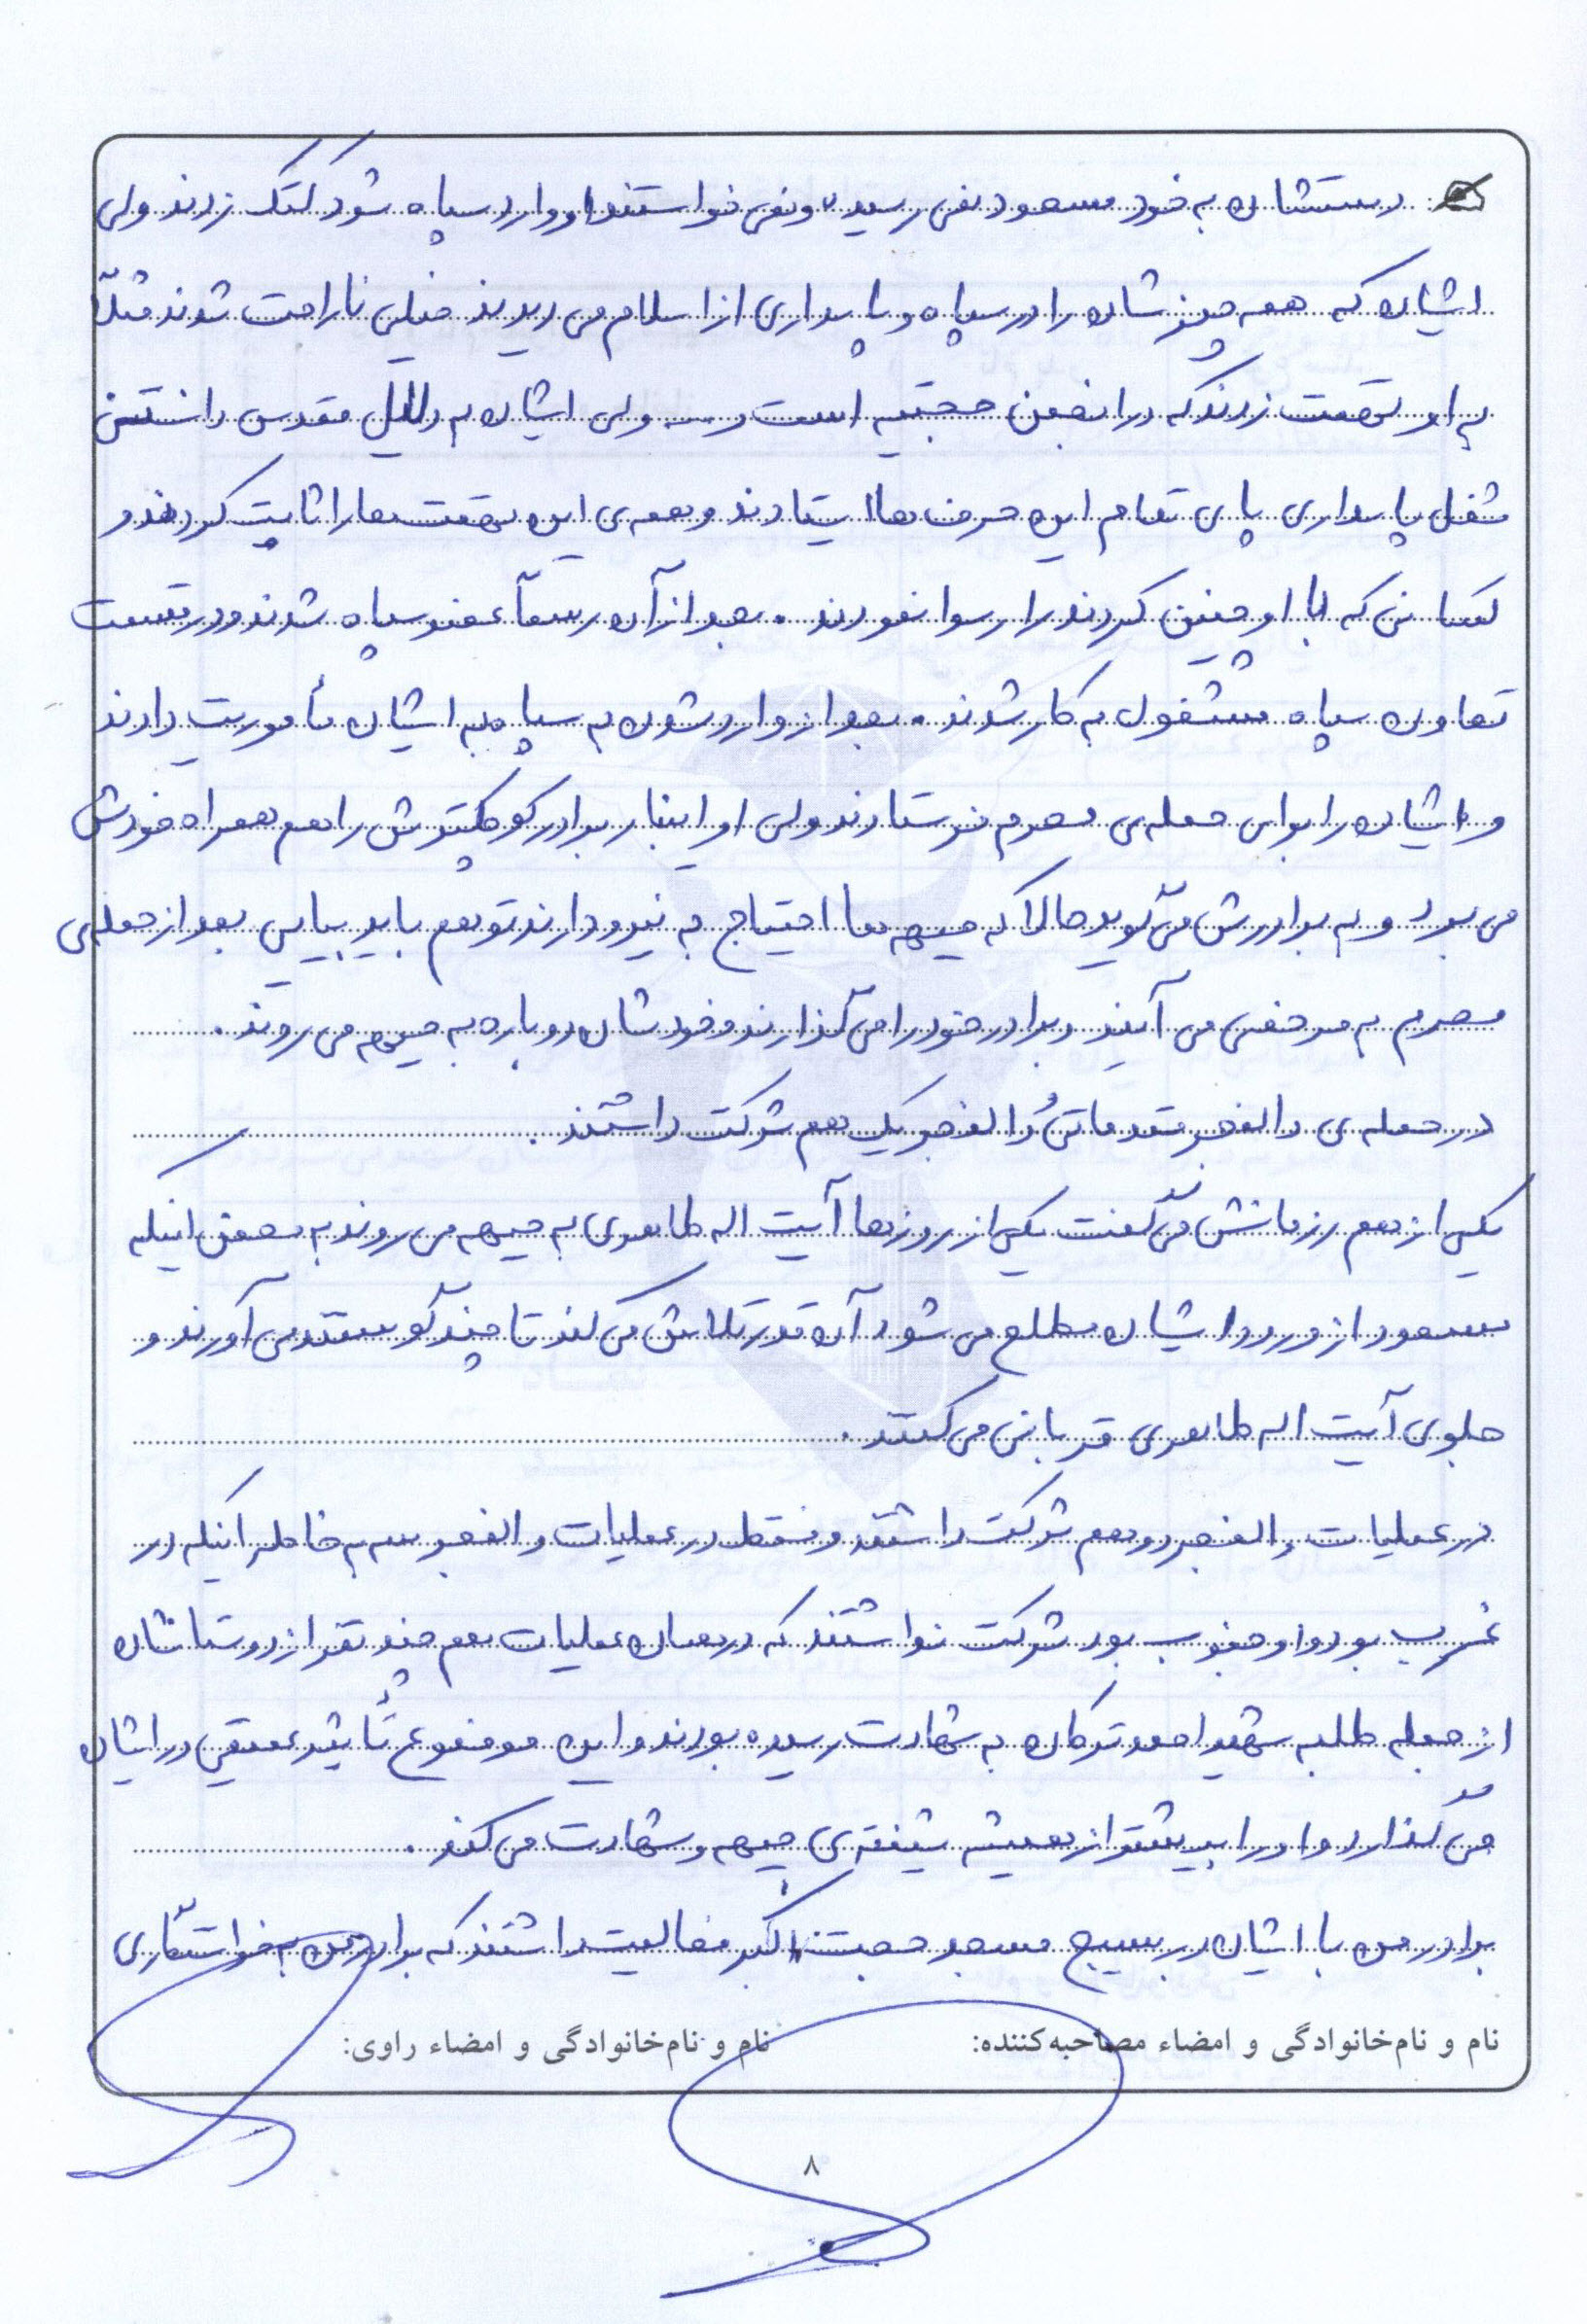 دستشان به خود مسعود نمی رسید و نمی خواستند او وارد سپاه شود کتک زدند ولی
ایشان که همه چیزشان را در سپاه و پاسداری از اسلام می دیدند خیلی ناراحت شدند مثلاً
به او تهمت زدند که در انجمن حجتیه است و ... ولی ایشان به دلیل مقدس دانستن
شغل پاسداری پای تمام این حرف ها ایستادند و همه ی این تهمت ها را ثابت کردند و
کسانی که با او چنین کردند را رسوا نمودند. بعد از آن رسماً عضو سپاه شدند و در قسمت
تعاون سپاه مشغول به کار شدند. بعد از وارد شدن به سپاه به ایشان مأموریت دادند
و ایشان را برای حمله ی محرم فرستادند ولی او اینبار برادر کوچکترش را هم همراه خودش
می برد و به برادرش می گوید حالا که جبهه ها احتیاج به نیرو دارند تو هم باید بیایی بعد از حمله ی
محرم به مرخصی می آیند و برادر خود را می گذارند و خودشان دوباره به جبهه می روند.
در حمله ی والفجر مقدماتی و والفجر یک هم شرکت داشتند.
یکی از هم رزمانش می گفت یکی از روزها آیت اله طاهری به جبهه می روند به محض اینکه
مسعود از ورود ایشان مطلع می شود آن قدر تلاش می کند تا چند گوسفند می آورند و
جلوی آیت اله طاهری قربانی می کنند.
در عملیات والفجر دو هم شرکت داشتند و فقط در عملیات والفجر سه به خاطر اینکه در
غرب بود و او جنوب بود شرکت نداشتند که در همان عملیات هم چند نفر از دوستانشان
از جمله طلبه شهید احمد ترکان به شهادت رسیده بودند و این موضوع تأثیر عمیقی در ایشان
می گذارد و او را بیشتر از همیشه شیفته ی جبهه و شهادت می کند.
برادر من با ایشان در بسیج مسجد حجت اکبر فعالیت داشتند که برادر من به خواستگاری
نام و نام‌خانوادگی و امضاء مصاحبه‌کننده: نام و نام‌خانوادگی و امضاء راوی:
۸